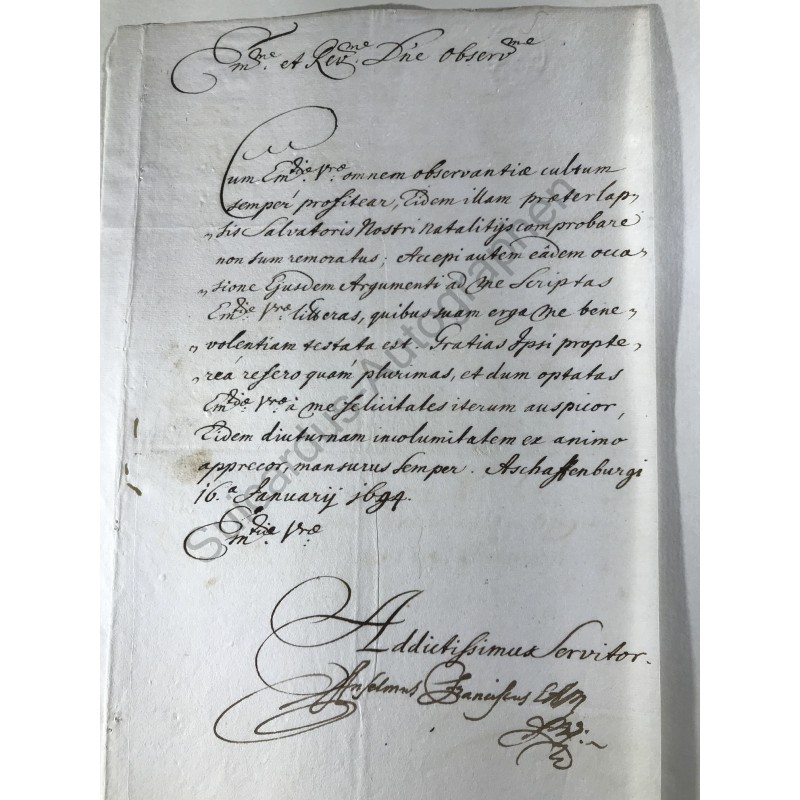 Em.me et Rev.me D'ne Observ.me
Cum Em.tiae Vrae omnem observantiae cultum
semper profitear, Eidem illam praeterlap-
-sis Salvatoris Nostri natalitijs comprobare
non sum remoratus; Accepi autem eâdem occa-
-sione Ejusdem Argumenti ad me Scriptas
Em.tiae Vrae litteras, quibus suam erga me bene-
-volentiam testata est. Gratias Ipsi propte-
-rea refero quam plurimas, et dum optatas
Em.tiae Vrae à me felicitates iterum auspicor,
Eidem diuturnam incolumitatem ex animo
apprecor, mansurus semper. Aschaffenburgi
16.a Januarij 1694.
Em.tiae Vrae
Addictissimus Servitor.
Anselmus Franciscus
Schardus-Autographen